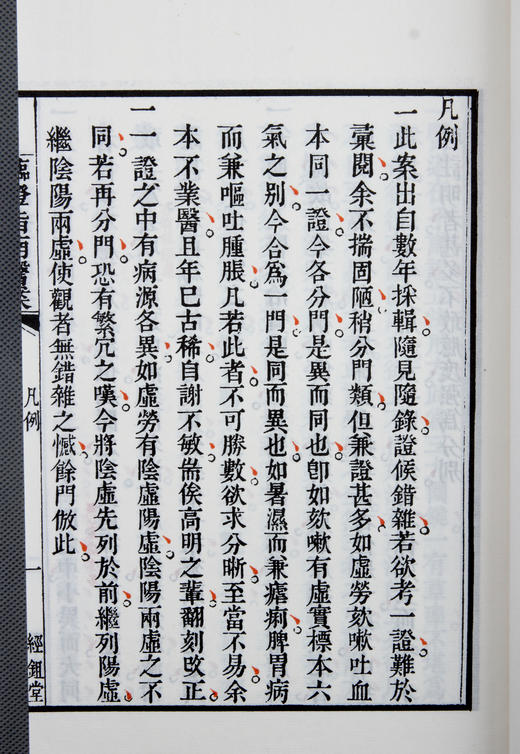 凡例
一此案出自數年採輯隨見隨錄證候錯雜若欲考一證難於
彚閱余不揣固陋稍分門類但兼證甚多如虛勞欬嗽吐血
本同一證今各分門是異而同也卽如欬嗽有虛實標本六
氣之別今合爲一門是同而異也如暑濕而兼瘧痢脾胃病
而兼嘔吐腫脹凡若此者不可勝數欲求分晰至當不易余
本不業醫且年已古稀自謝不敏耑俟高明之輩翻刻攺正
一一證之中有病源各異如虛勞有陰虛陽虛陰陽兩虛之不
同若再分門恐有繁冗之嘆今將陰虛先列於前繼列陽虛
繼陰陽兩虛使觀者無錯雜之憾餘門倣此
臨證指南醫案
凡例
一
經鉏堂